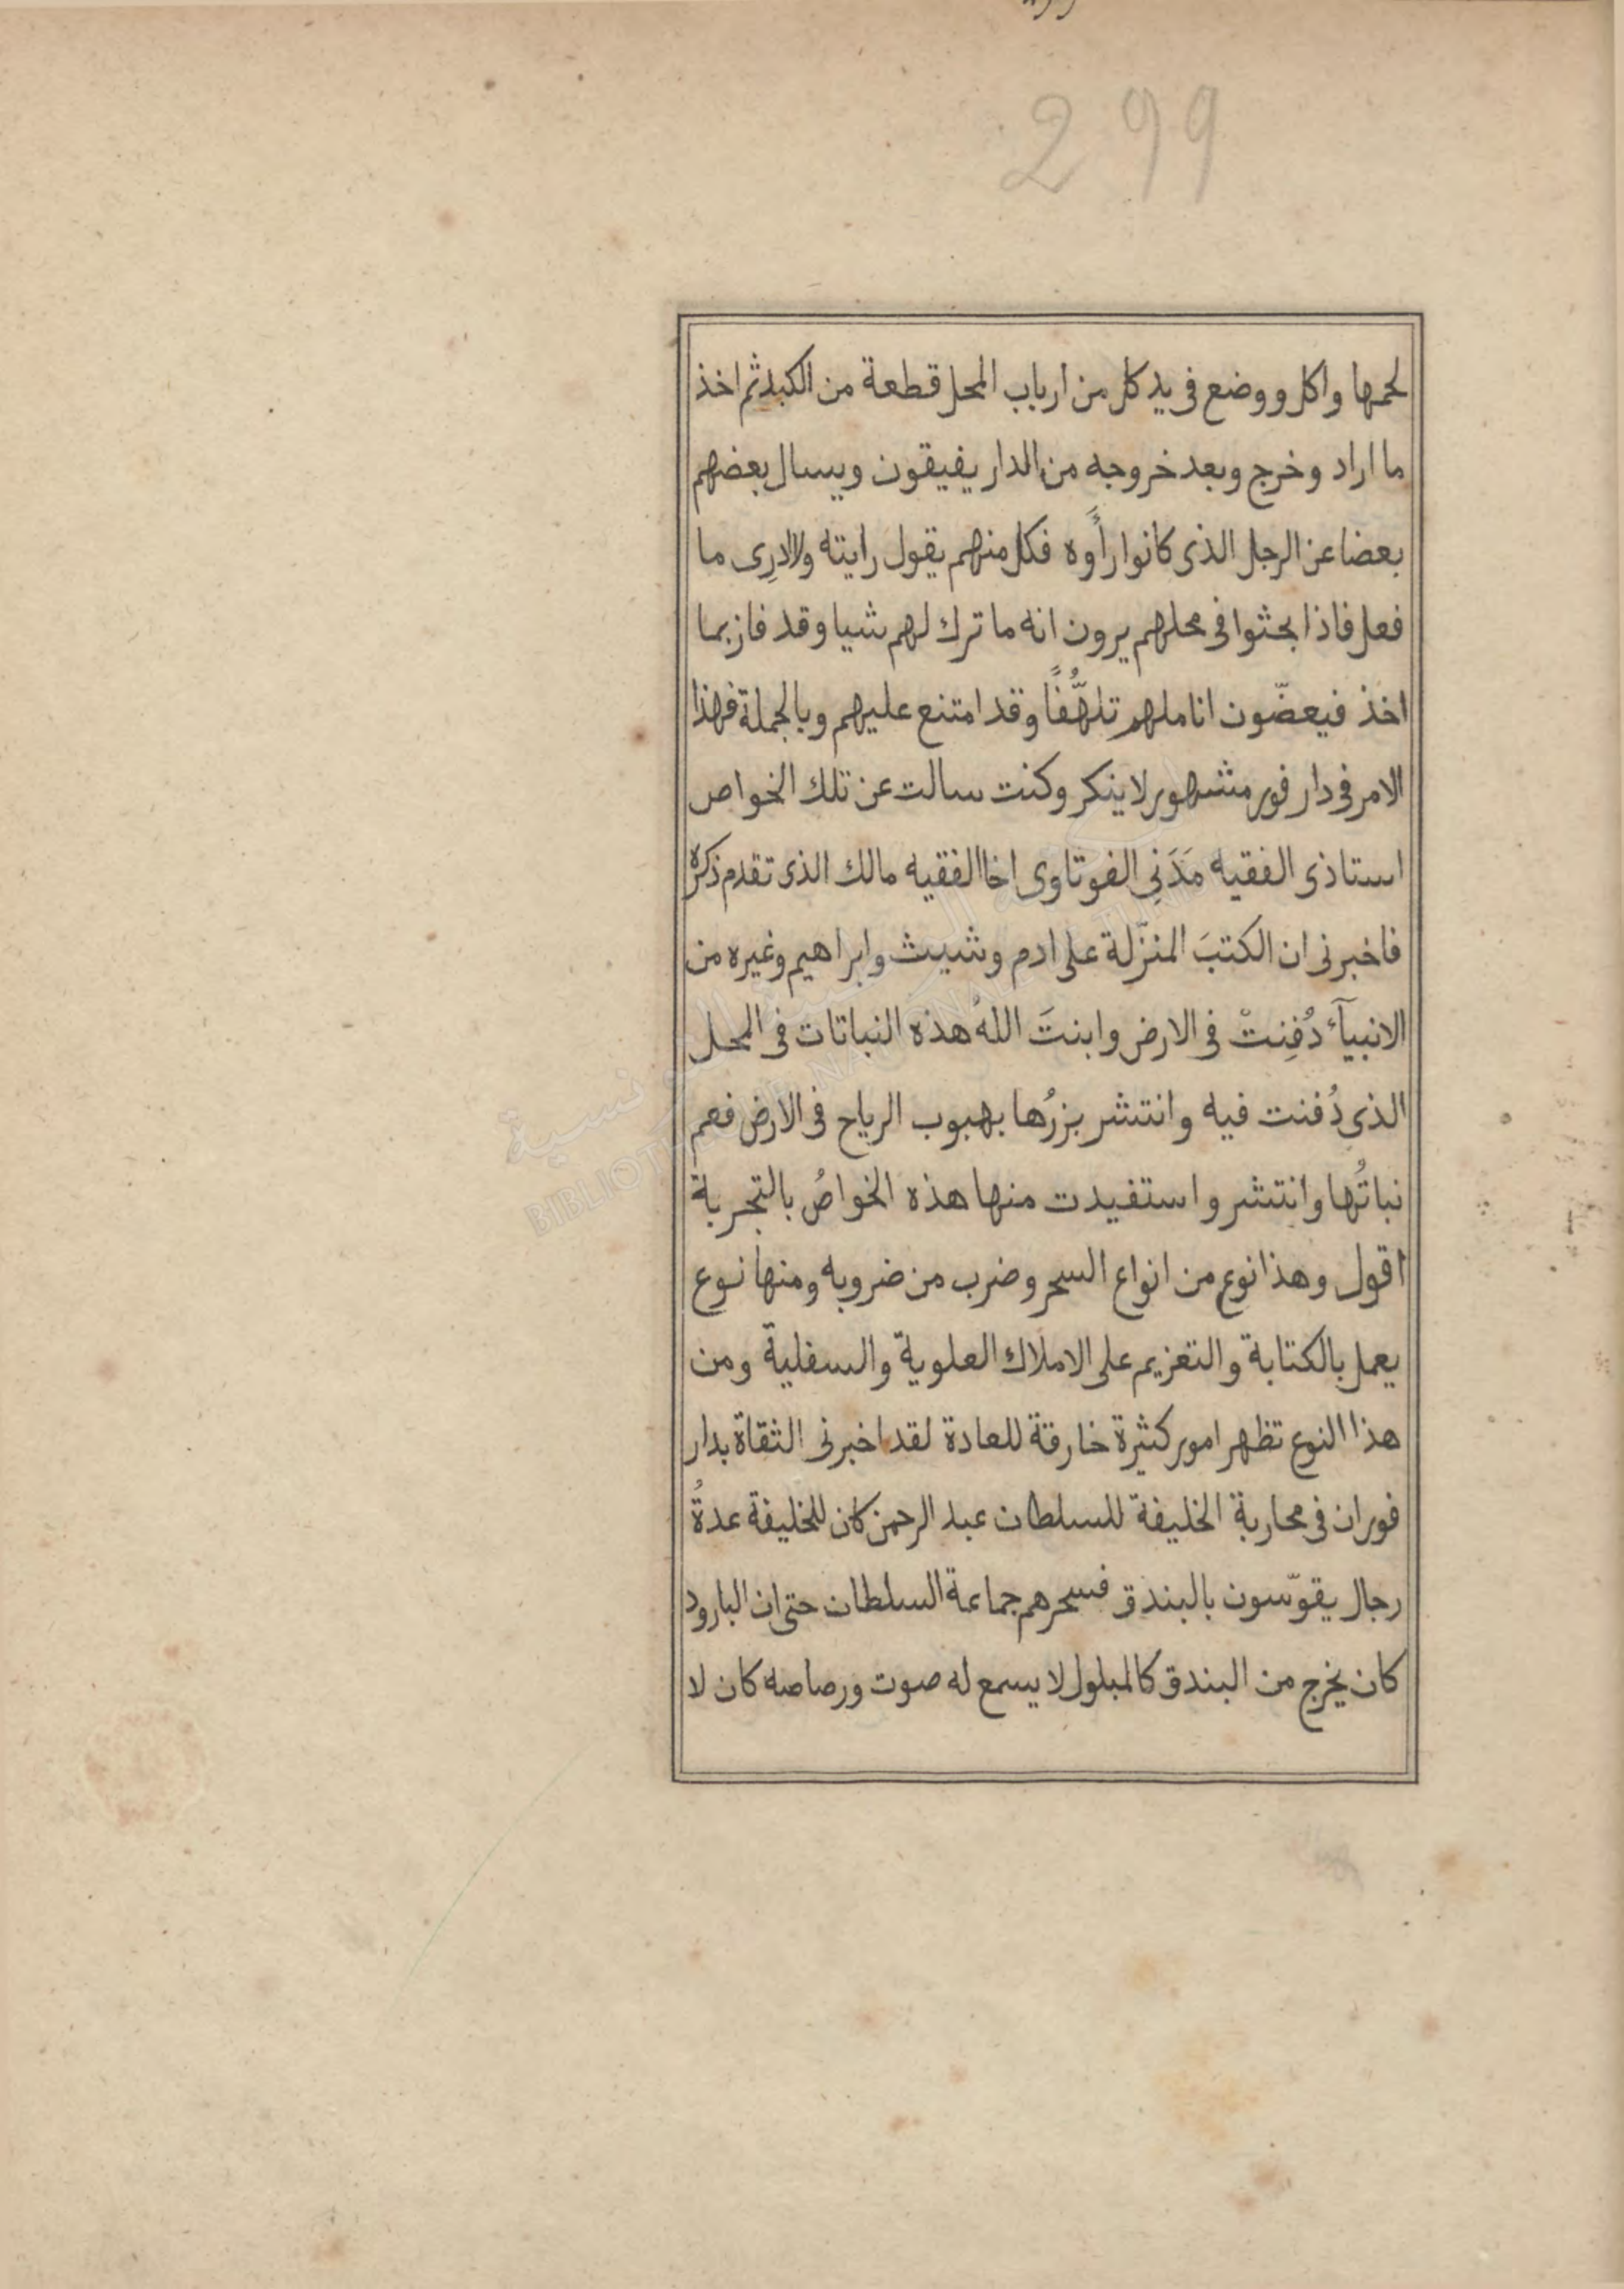 299
لحمها واكل ووضع فى يد كل من ارباب المحل قطعة من الكبد ثم اخذ
ما اراد وخرج وبعد خروجه من الدار يفيقون ويسال بعضهم
بعضا عن الرجل الذى كانوا رأَوه فكل منهم يقول رايته ولا ادرِى ما
فعل فاذا بحثوا فى محلهم يرون انه ما ترك لهم شيا وقد فاز بما
اخذ فيعضّون اناملهم تلهُّفًا وقد امتنع عليهم وبالجملة فهذا
الامر فى دار فور مشهور لا ينكر وكنت سالت عن تلك الخواص
استاذى الفقيه مَدَنِى الفوتاوى اخا الفقيه مالك الذى تقدم ذكره
فاخبرنى ان الكتبَ المنزّلة على ادم وشيث وابراهيم وغيره من
الانبيآء دُفِنتْ فى الارض وانبتَ اللهُ هذه النباتات فى المحل
الذى دُفنت فيه وانتشر بزرُها بهبوب الرياح فى الارض فعم
نباتُها وانتشر واستفيدت منها هذه الخواصُ بالتجربة
اقول وهذا نوع من انواع السحر وضرب من ضروبه ومنها نوع
يعمل بالكتابة والتعزيم على الاملاك العلوية والسفلية ومن
هذا النوع تظهر امور كثيرة خارقة للعادة لقد اخبرنى الثقاة بدار
فور ان فى محاربة الخليفة للسلطان عبد الرحمن كان للخليفة عدةُ
رجال يقوّسون بالبندق فسحرهم جماعة السلطان حتى ان البارود
كان يخرج من البندق كالمبلول لا يسمع له صوت ورصاصه كان لا
BIBLIOTHEQUE NATIONALE